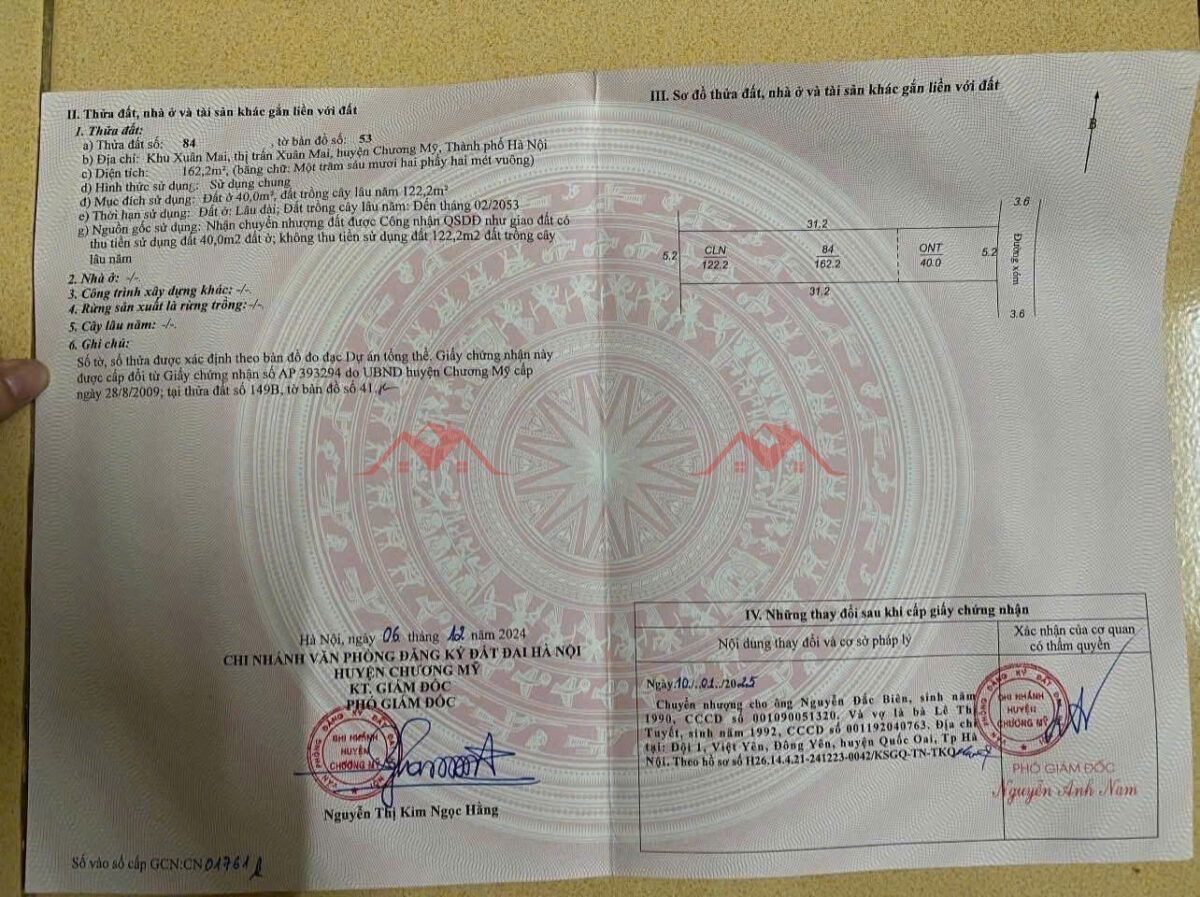 II. Thửa đất, nhà ở và tài sản khác gắn liền với đất
1. Thửa đất:
a) Thửa đất số: 84 , tờ bản đồ số: 53
b) Địa chỉ: Khu Xuân Mai, thị trấn Xuân Mai, huyện Chương Mỹ, Thành phố Hà Nội
c) Diện tích: 162,2m², (bằng chữ: Một trăm sáu mươi hai phẩy hai mét vuông)
d) Hình thức sử dụng: Sử dụng chung
đ) Mục đích sử dụng: Đất ở 40,0m², đất trồng cây lâu năm 122,2m²
e) Thời hạn sử dụng: Đất ở: Lâu dài; Đất trồng cây lâu năm: Đến tháng 02/2053
g) Nguồn gốc sử dụng: Nhận chuyển nhượng đất được Công nhận QSDĐ như giao đất có
thu tiền sử dụng đất 40,0m2 đất ở; không thu tiền sử dụng đất 122,2m2 đất trồng cây
lâu năm
2. Nhà ở: -/-.
3. Công trình xây dựng khác: -/-.
4. Rừng sản xuất là rừng trồng:-/-.
5. Cây lâu năm: -/-.
6. Ghi chú:
Số tờ, số thửa được xác định theo bản đồ đo đạc Dự án tổng thể. Giấy chứng nhận này
được cấp đổi từ Giấy chứng nhận số AP 393294 do UBND huyện Chương Mỹ cấp
ngày 28/8/2009; tại thửa đất số 149B, tờ bản đồ số 41.
Hà Nội, ngày 06 tháng 12 năm 2024
CHI NHÁNH VĂN PHÒNG ĐĂNG KÝ ĐẤT ĐAI HÀ NỘI
HUYỆN CHƯƠNG MỸ
KT. GIÁM ĐỐC
PHÓ GIÁM ĐỐC
CHI NHÁNH
HUYỆN
CHƯƠNG MỸ
Nguyễn Thị Kim Ngọc Hằng
Số vào sổ cấp GCN:CN 01761
III. Sơ đồ thửa đất, nhà ở và tài sản khác gắn liền với đất
B
3.6
31.2
5.2
CLN
122.2
84
162.2
ONT
40.0
5.2
Đường xóm
31.2
3.6
IV. Những thay đổi sau khi cấp giấy chứng nhận
Nội dung thay đổi và cơ sở pháp lý
Xác nhận của cơ quan
có thẩm quyền
Ngày 10../.01../2025
Chuyển nhượng cho ông Nguyễn Đắc Biên, sinh năm
1990, CCCD số 001090051320. Và vợ là bà Lê Thị
Tuyết, sinh năm 1992, CCCD số 001192040763. Địa chỉ
tại: Đội 1, Việt Yên, Đông Yên, huyện Quốc Oai, Tp Hà
Nội. Theo hồ sơ số H26.14.4.21-241223-0042/KSGQ-TN-TKQ
CHI NHÁNH
HUYỆN
CHƯƠNG MỸ
PHÓ GIÁM ĐỐC
Nguyễn Anh Nam